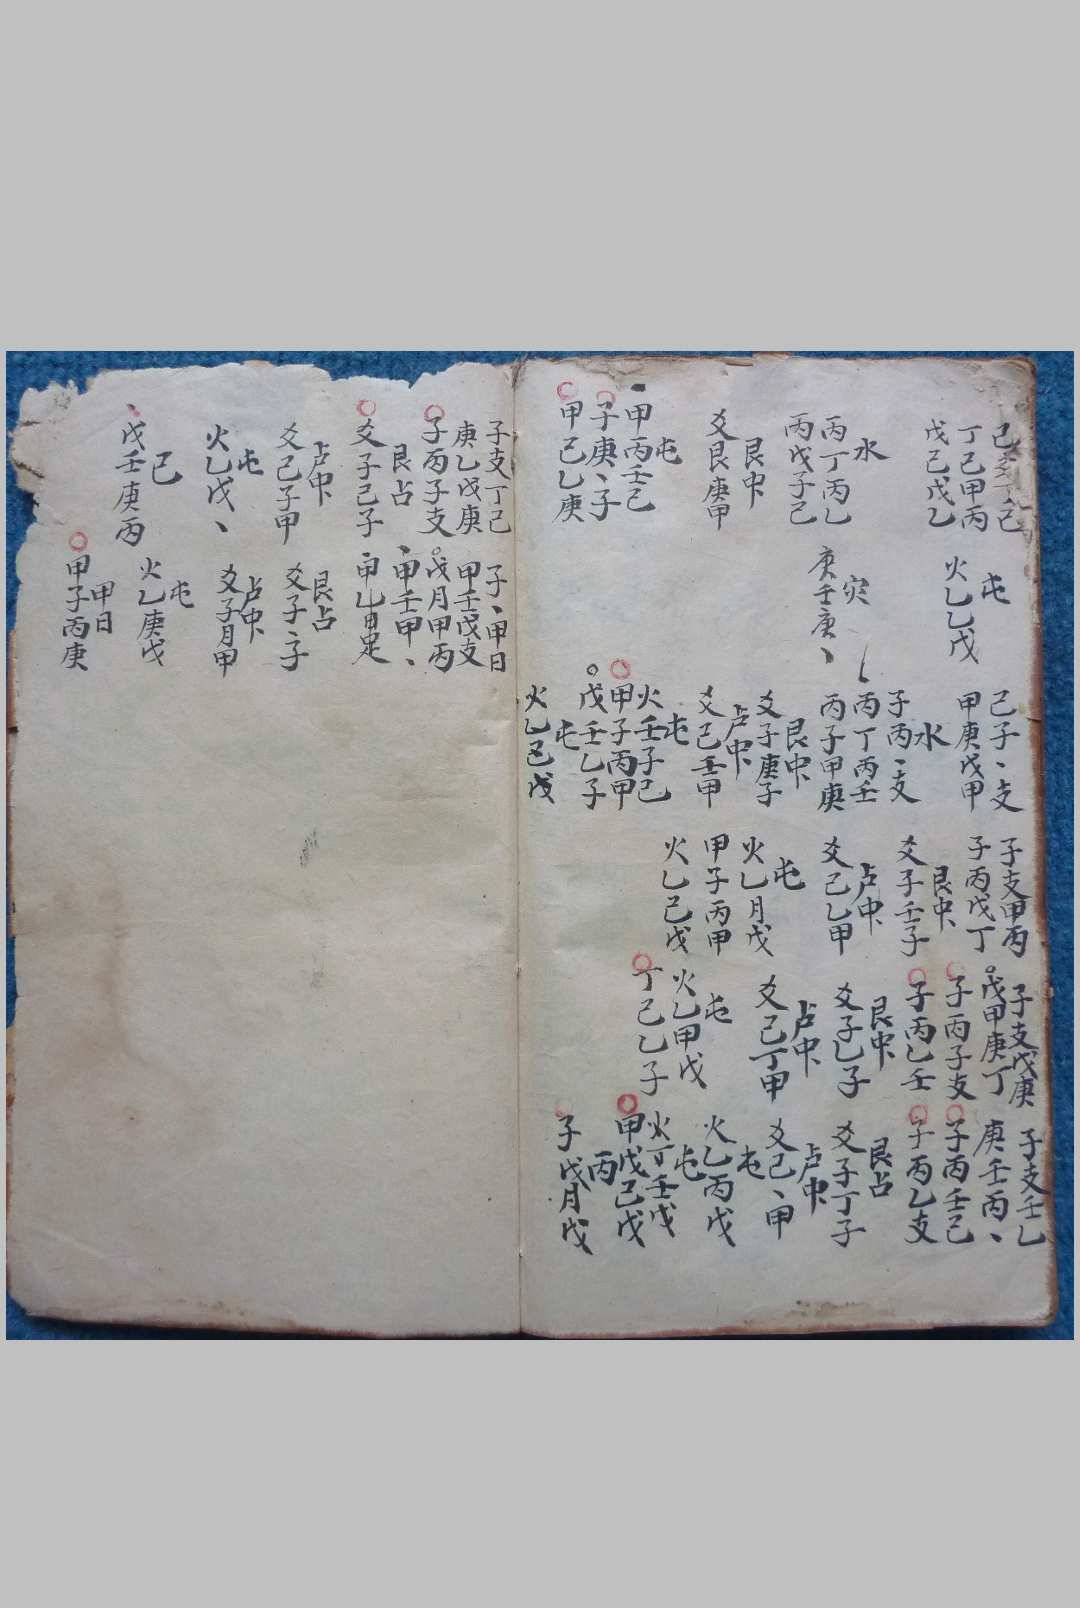 己支丁己
丁己甲丙
戊己戊乙
水
丙丁丙乙
丙戊子己
艮中
爻艮庚甲
屯
丶甲丙壬己
子庚丶子
甲己乙庚
屯
火乙乙戊
灾
庚壬庚丶
己子丶支
甲庚戊甲
水
子丙丶支
丙丁丙壬
丙子甲庚
艮中
爻子庚子
占中
爻己壬甲
屯
火壬子己
甲子丙甲
戊壬乙子
屯
火乙己戊
子支甲丙
子丙戊丁
艮中
爻子壬子
占中
爻己乙甲
屯
火乙月戊
甲子丙甲
火乙己戊
子支戊庚
戊甲庚丁
子丙子支
子丙乙壬
艮中
爻子乙子
占中
爻己丁甲
屯
火乙甲戊
丁己乙子
子支壬乙
庚壬丙丶
子丙壬己
子丙乙支
艮占
爻子丁子
占中
爻己丶甲
屯
火乙丙戊
屯
火丁壬戊
甲戊己戊
丙
子戊月戊
子支丁己
庚乙戊庚
子丙子支
艮占
爻子己子
占中
爻己子甲
屯
火乙戊丶
己
戊壬庚丙
子丶甲日
甲壬戊支
戊月甲丙
甲壬甲丶
艮占
爻子丶子
占中
爻子月甲
屯
火乙庚戊
甲日
甲子丙庚